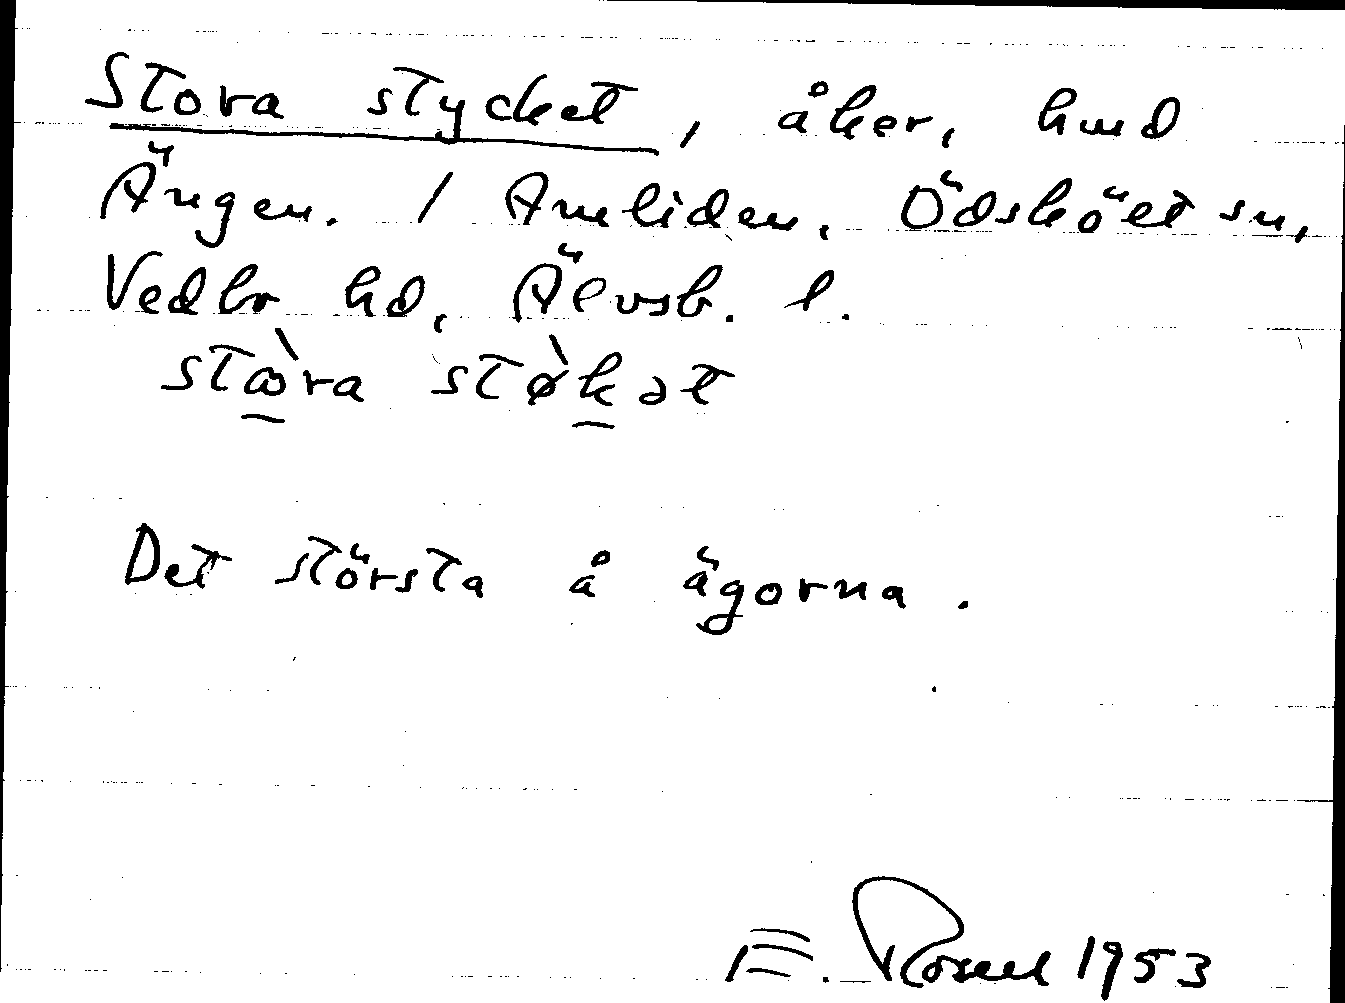 Stora stycket, åker, hmd
Ängen. / Amliden, Ödskölt sn,
Vedbo hd, Älvsb. l.
stɷ̀ra stø̀kət
Det största å ägorna.
E. Rosell 1953